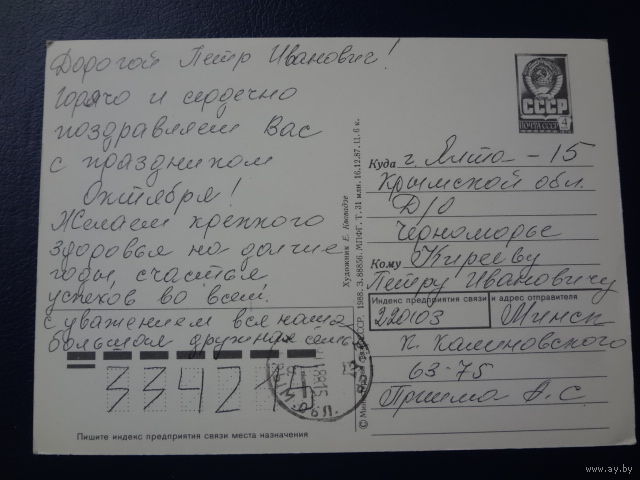 Дорогой Петр Иванович!
Горячо и сердечно
поздравляем Вас
с праздником
Октября!
Желаем крепкого
здоровья на долгие
годы, счастья
успехов во всем.
с уважением вся наша
большая дружная семья
334214
Пишите индекс предприятия связи места назначения
Художник Е. Квавадзе
СССР, 1988. З. 88856. МПФГ. Т. 31 млн. 16.12.87. Ц. 6 к.
СССР
ПОЧТА СССР
4
Куда г. Ялта-15
Крымской обл.
Д/О
Черноморье
Кому Кирееву
Петру Ивановичу
Индекс предприятия связи и адрес отправителя
220103 Минск
К. Калиновского
63-75
А. С
www.ay.by